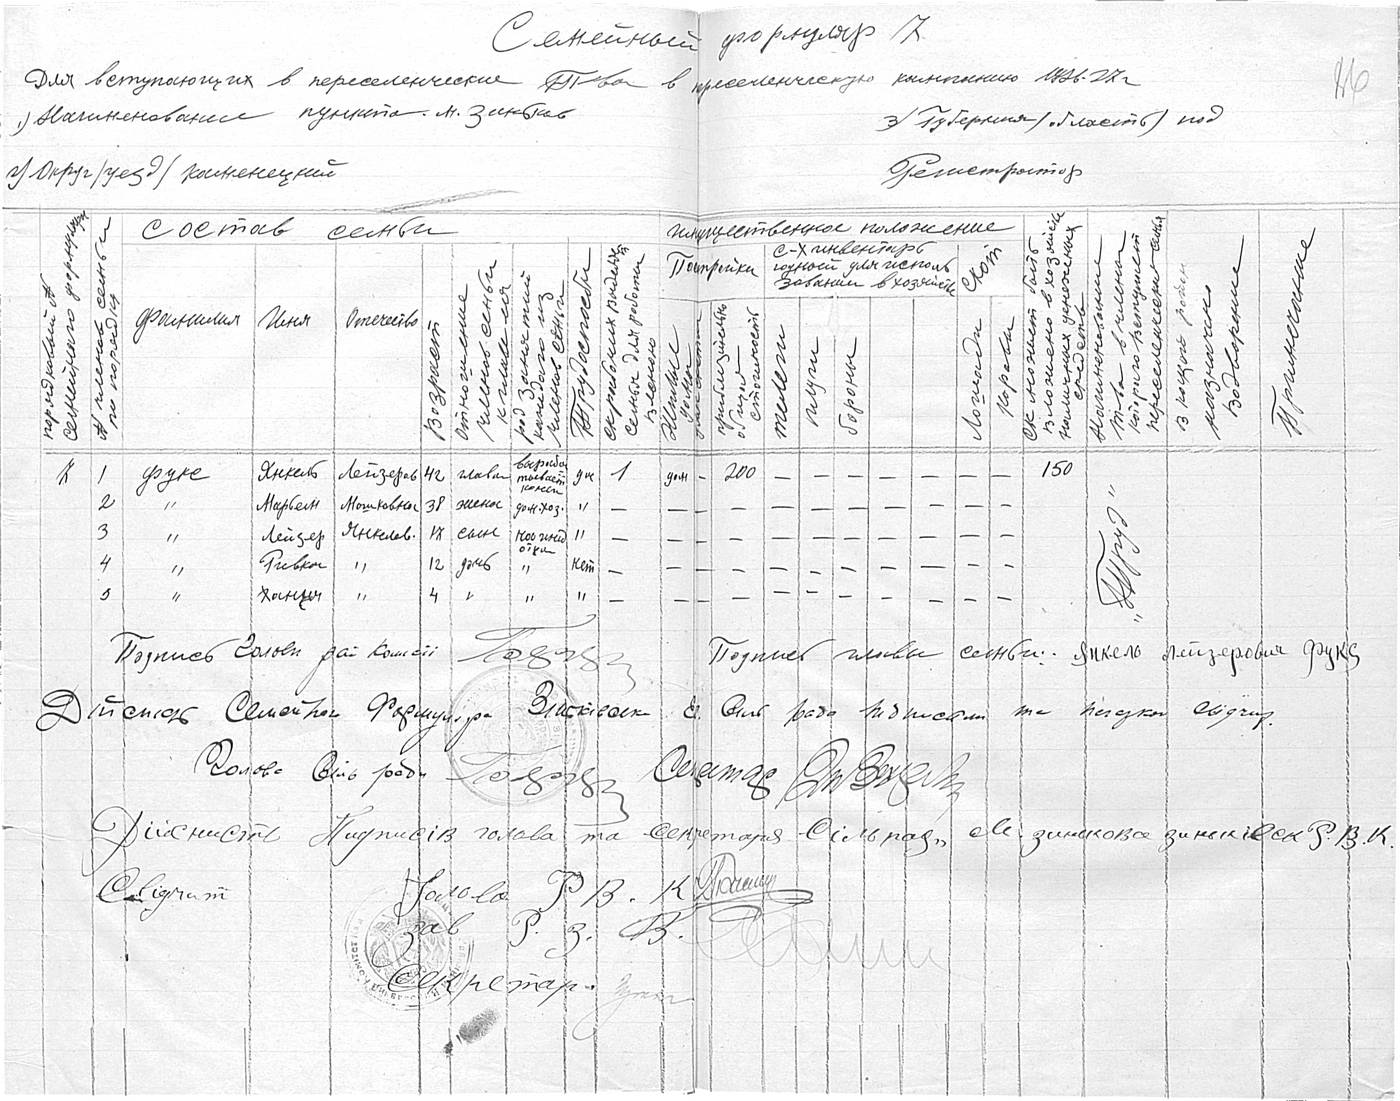 Семейный формуляр 7
86
Для вступающих в переселенческие Т-ва в переселенческую кампанию 1926-27 г
1) Наименование пункта м. Зиньков
3) Губерния/область/ под
2) Округ/уезд/ каменецкий
Регистратор
состав семьи
имущественное положение
порядковый № семейного формуляра
№ членов семьи по порядку
Фамилия
Имя
Отчество
Возраст
Отношение членов семьи к главе
род занятий каждого из членов семьи
Трудоспособн
семьи для работы в земо
Постройки
Жилые дома
приблизительно общая стоимость
с-х инвентарь годный для исполь
зования в хозяйстве
телеги
плуги
бороны
скот
Лошади
коровы
Ск может быть вложено в хозяйств наличных денежных средств
Наименование т-ва в члены которого вступает переселенч семья
в какой район назначено водворение
Примечание
7 1 Фукс Янкель Лейзеров 42 глава да 1 дом - 200 - - - - - - - 150
2 " Марьям Мошковна 38 жена дом.хоз. " - - - - - - - - - -
3 " Лейзер Янкелев. 17 сын " - - - - - - - - - -
4 " Ривка " 12 дочь " нет - - - - - - - - - -
5 " Ханця " 4 " " " - - - - - - - - - -
„Труд"
Подпись Голови рай Комісіі
Подпись главы семьи: Янкель Лейзерович Фукс
Дійсність Семейного Формуляра Зіньківська Сіль рада підписом та печаткою свідчир.
Голова Сіль ради Секретар
Дійсність Підписів голова та секретаря Сільрад„ м. зинькова зиньківск Р.В.К.
Свідчит Голова Р.В.К
зав Р. З. В.
Секретар.